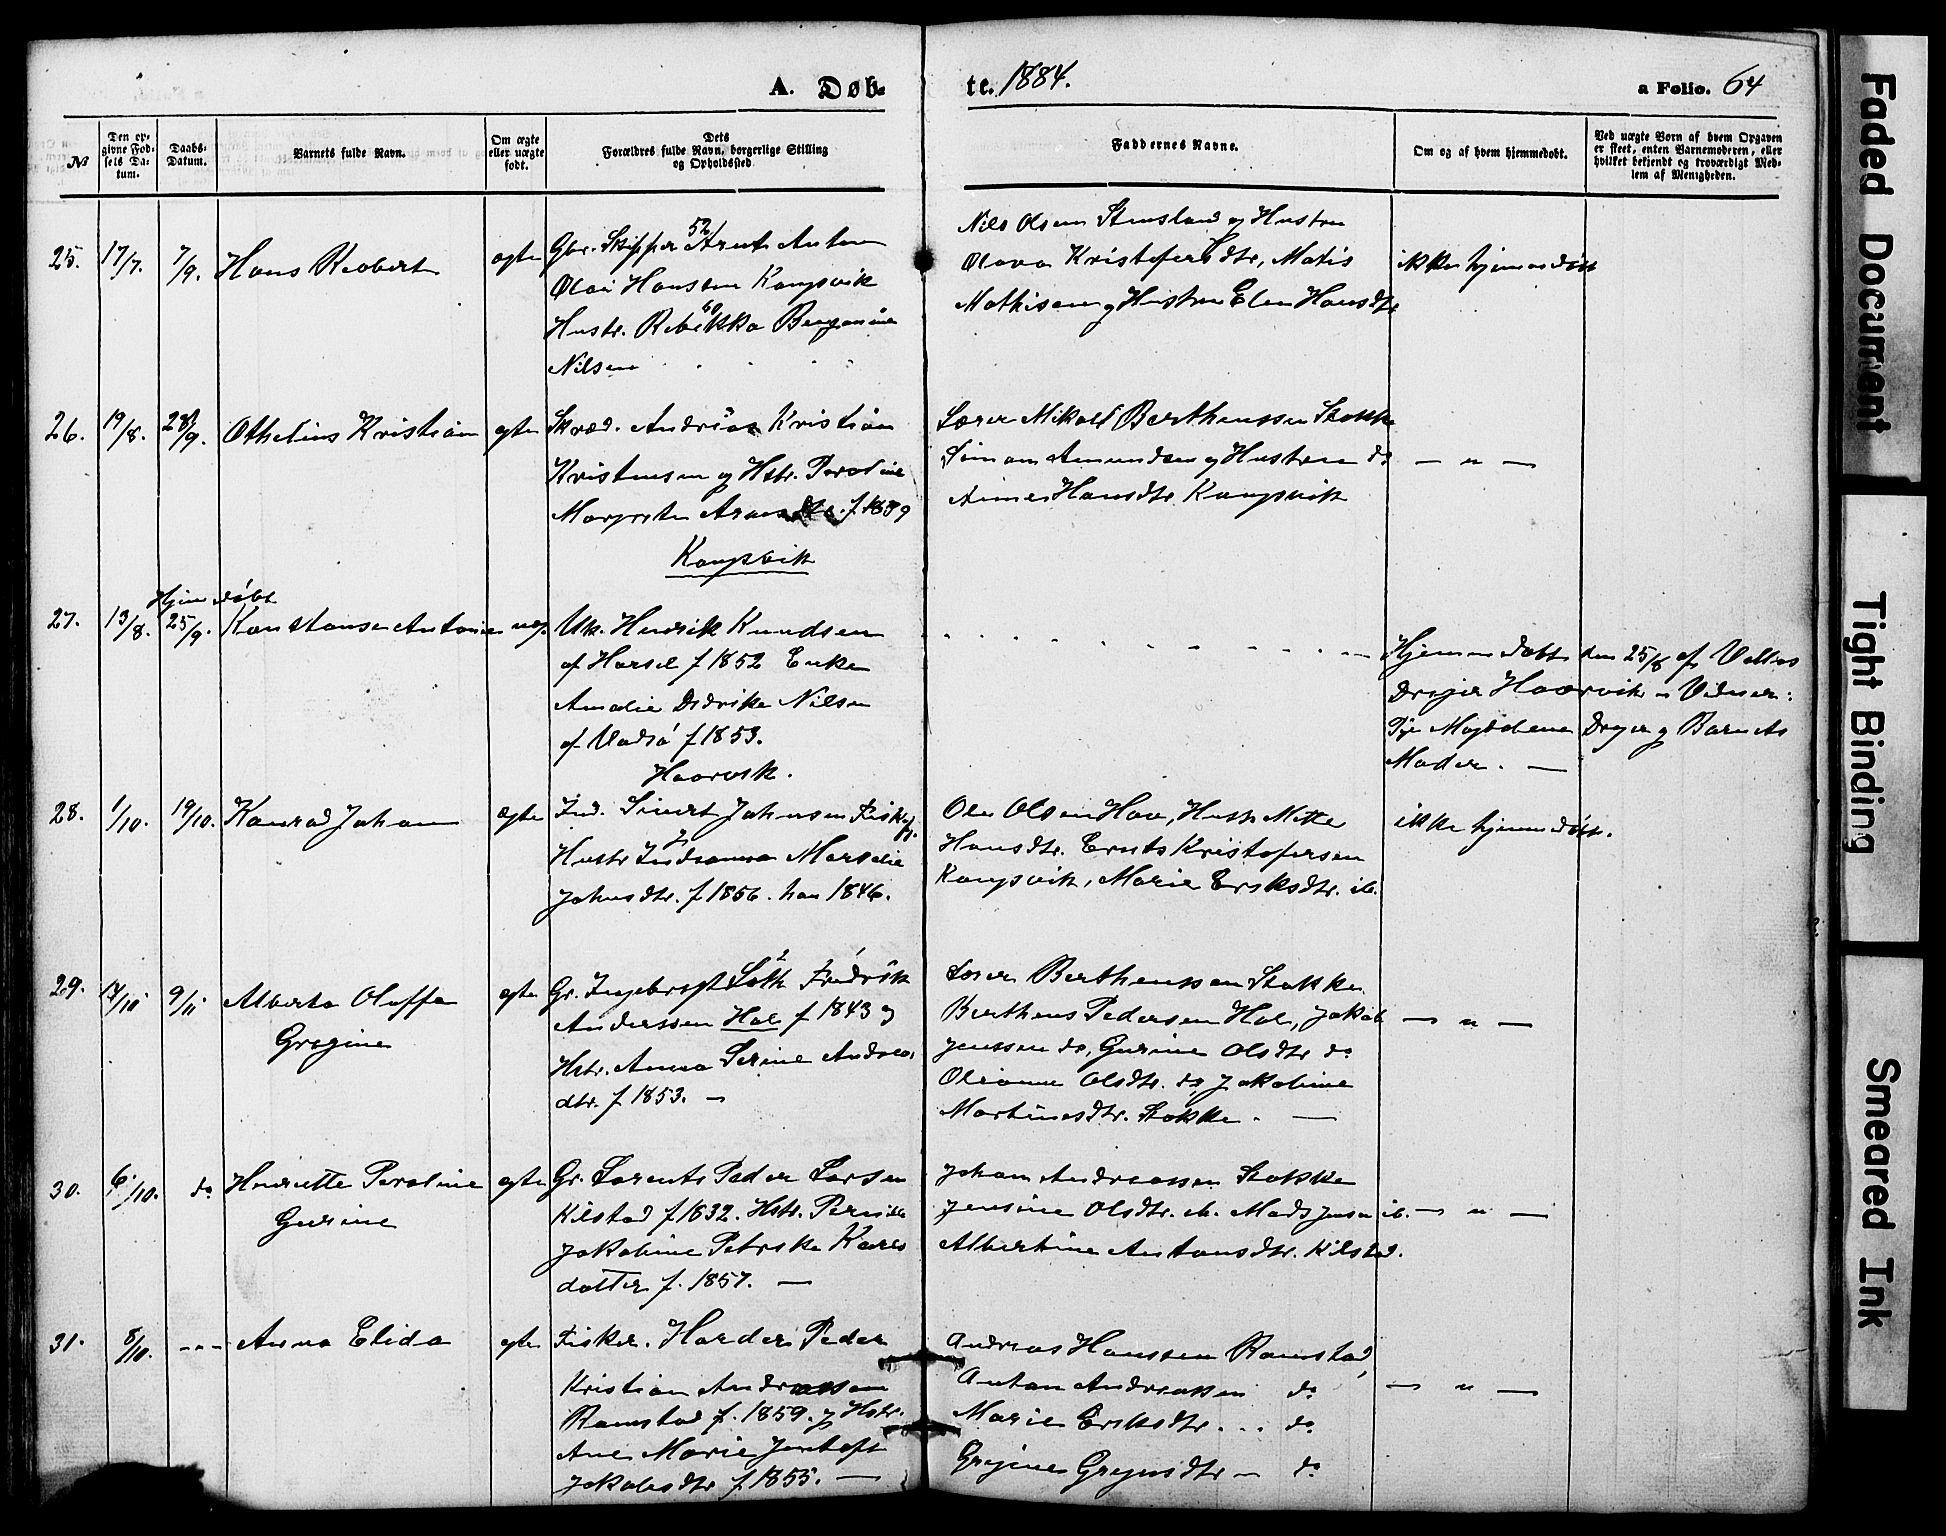 A. Døb-
te. 1884.
a Folio. 64
№
Den op-
givne Fød-
sels Da-
tum.
Daabs-
Datum.
Barnets fulde Navn.
Om ægte
eller uægte
født.
Dets
Forældres fulde Navn, borgerlige Stilling
og Opholdssted.
Faddernes Navne.
Om og af hvem hjemmedøbt.
Ved uægte Børn af hvem Opgaven
er skeet, enten Barnemoderen, eller
hvilket bekjendt og troværdigt Med-
lem af Menigheden.
25. 17/7. 7/9. Hans Reobert ægte
Gbr. Skipper Arent Anton 52
Olai Hanssen Kongsvik
Hustr. Rebekka Bergonine 60
Nilsen
Nils Olsen Stensland og Hustru
Olava Kristofersdtr, Matis
Mathisen og Hustru Elen Hansdtr
ikke hjemmedøbt
26. 19/8. 28/9. Othelius Kristian ægte
Skræd. Andreas Kristian
Kristensen og Hstr. Peroline
Margrete Arnesdtr. f. 1839
Kongsvik
Lærer Mikael Berthenssen Stokke
Simon Amundsen og Hustru do
Anne Hansdtr Kongsvik
— " —
27. 13/8. Hjemdøbt
25/9. Konstanse Antonie uæg.
Uk. Henrik Knudsen
af Harsel f 1852 Enke
Amalie Didrike Nilsen
af Vadsø f 1853.
Haarvik.
Hjemmedøbt den 25/8 af
Dreyer Haarvik
Magdalene Dreyer og Barnets
Moder. —
28. 1/10. 19/10. Konrad Johan ægte
Ind. Sivert Johnsen Fiskefj.
Hustr Indianna Marselie
Johnsdtr. f 1856. han 1846.
Ole Olsen Hov, Hustr Mette
Hansdtr. Ernts Kristofersen
Kongsvik, Marie Eriksdtr. ib.
ikke hjemmedøbt.
29. 14/10 9/11 Alberta Oluffa
Gregine
ægte
Gr. Ingebrigt Loth Fredrik
Anderssen Hol f 1843 og
Hstr. Anna Serine Andreas
dtr. f 1853. —
Lærer Berthenssen Stokke
Berthens Pedersen Hol, Jakob
Jenssen do, Gurine Olsdtr do
Oleanne Olsdtr. do Jakobine
Martinesdtr. Stokke. —
— " —
30. 6/10. do Henriette Peroline
Gurine
ægte
Gr. Lorents Peder Larsen
Kilstad f 1832. Hstr. Pernille
Jakobine Petrike Kares
datter f. 1857. —
Johan Andreassen Stokke
Jensine Olsdtr. ib. Mads Jensen ib.
Albertine Antonsdtr. Kilstad.
— " —
31. 8/10. --- Anna Elida ægte
Fisker. Harder Peder
Kristian Andreassen
Ramstad f. 1859. og Hstr.
Ane Marie Jentoft
Jakobsdtr f 1855. —
Andreas Hanssen Ramstad,
Anton Andreassen do
Marie Eriksdtr. .. do
Gregine Gregersdtr — do
— " —
Faded Document
Tight Binding
Smeared Ink